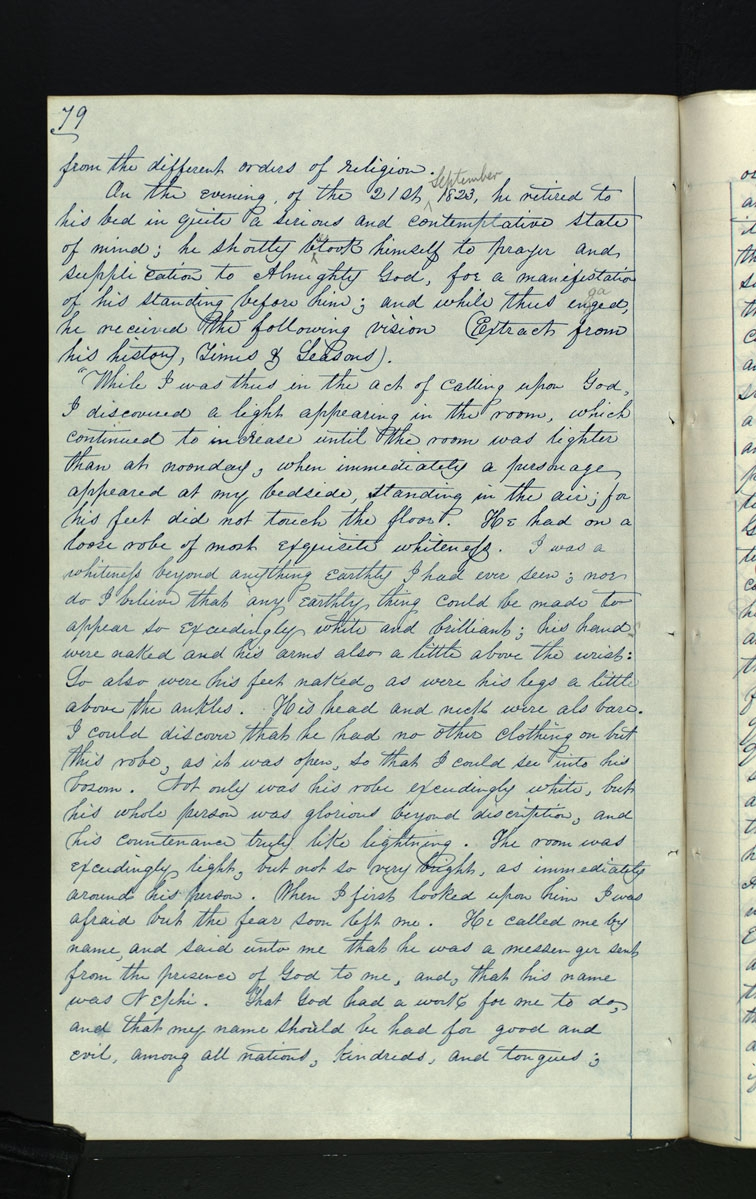 79
from the different orders of religion.
On the evening, of the 21st, September 1823, he retired to
his bed in quite a serious and contemplative state
of mind; he shortly btook himself to prayer and
supplication to Almighty God, for a manefistation
of his standing before him; and while thus engaged,
he received the following vision (Extract from
his history, Times & Seasons).
"While I was thus in the act of calling upon God,
I discovered a light appearing in the room, which
continued to increase until the room was lighter
than at noonday, when immediately a personage
appeared at my bedside, standing in the air; for
his feet did not touch the floor. He had on a
loose robe of most exquisite whiteness. I was a
whiteness beyond anything earthly I had ever seen; nor
do I believe that any earthly thing could be made to
appear so exceedingly white and brilliant; his hands
were naked and his arms also a little above the wrist:
So also were his feet naked, as were his legs a little
above the ankles. His head and neck were als bare.
I could discover that he had no other clothing on but
this robe, as it was open, so that I could see into his
bosom. Not only was his robe exceedingly white, but
his whole person was glorious beyond discription, and
his countenance truly like lightning. The room was
exceedingly light, but not so very bright, as immediately
around his person. When I first looked upon him I was
afraid but the fear soon left me. He called me by
name, and said unto me that he was a messenger sent
from the presence of God to me, and, that his name
was Nephi. That God had a work for me to do,
and that my name should be had for good and
evil, among all nations, kindreds, and tongues;